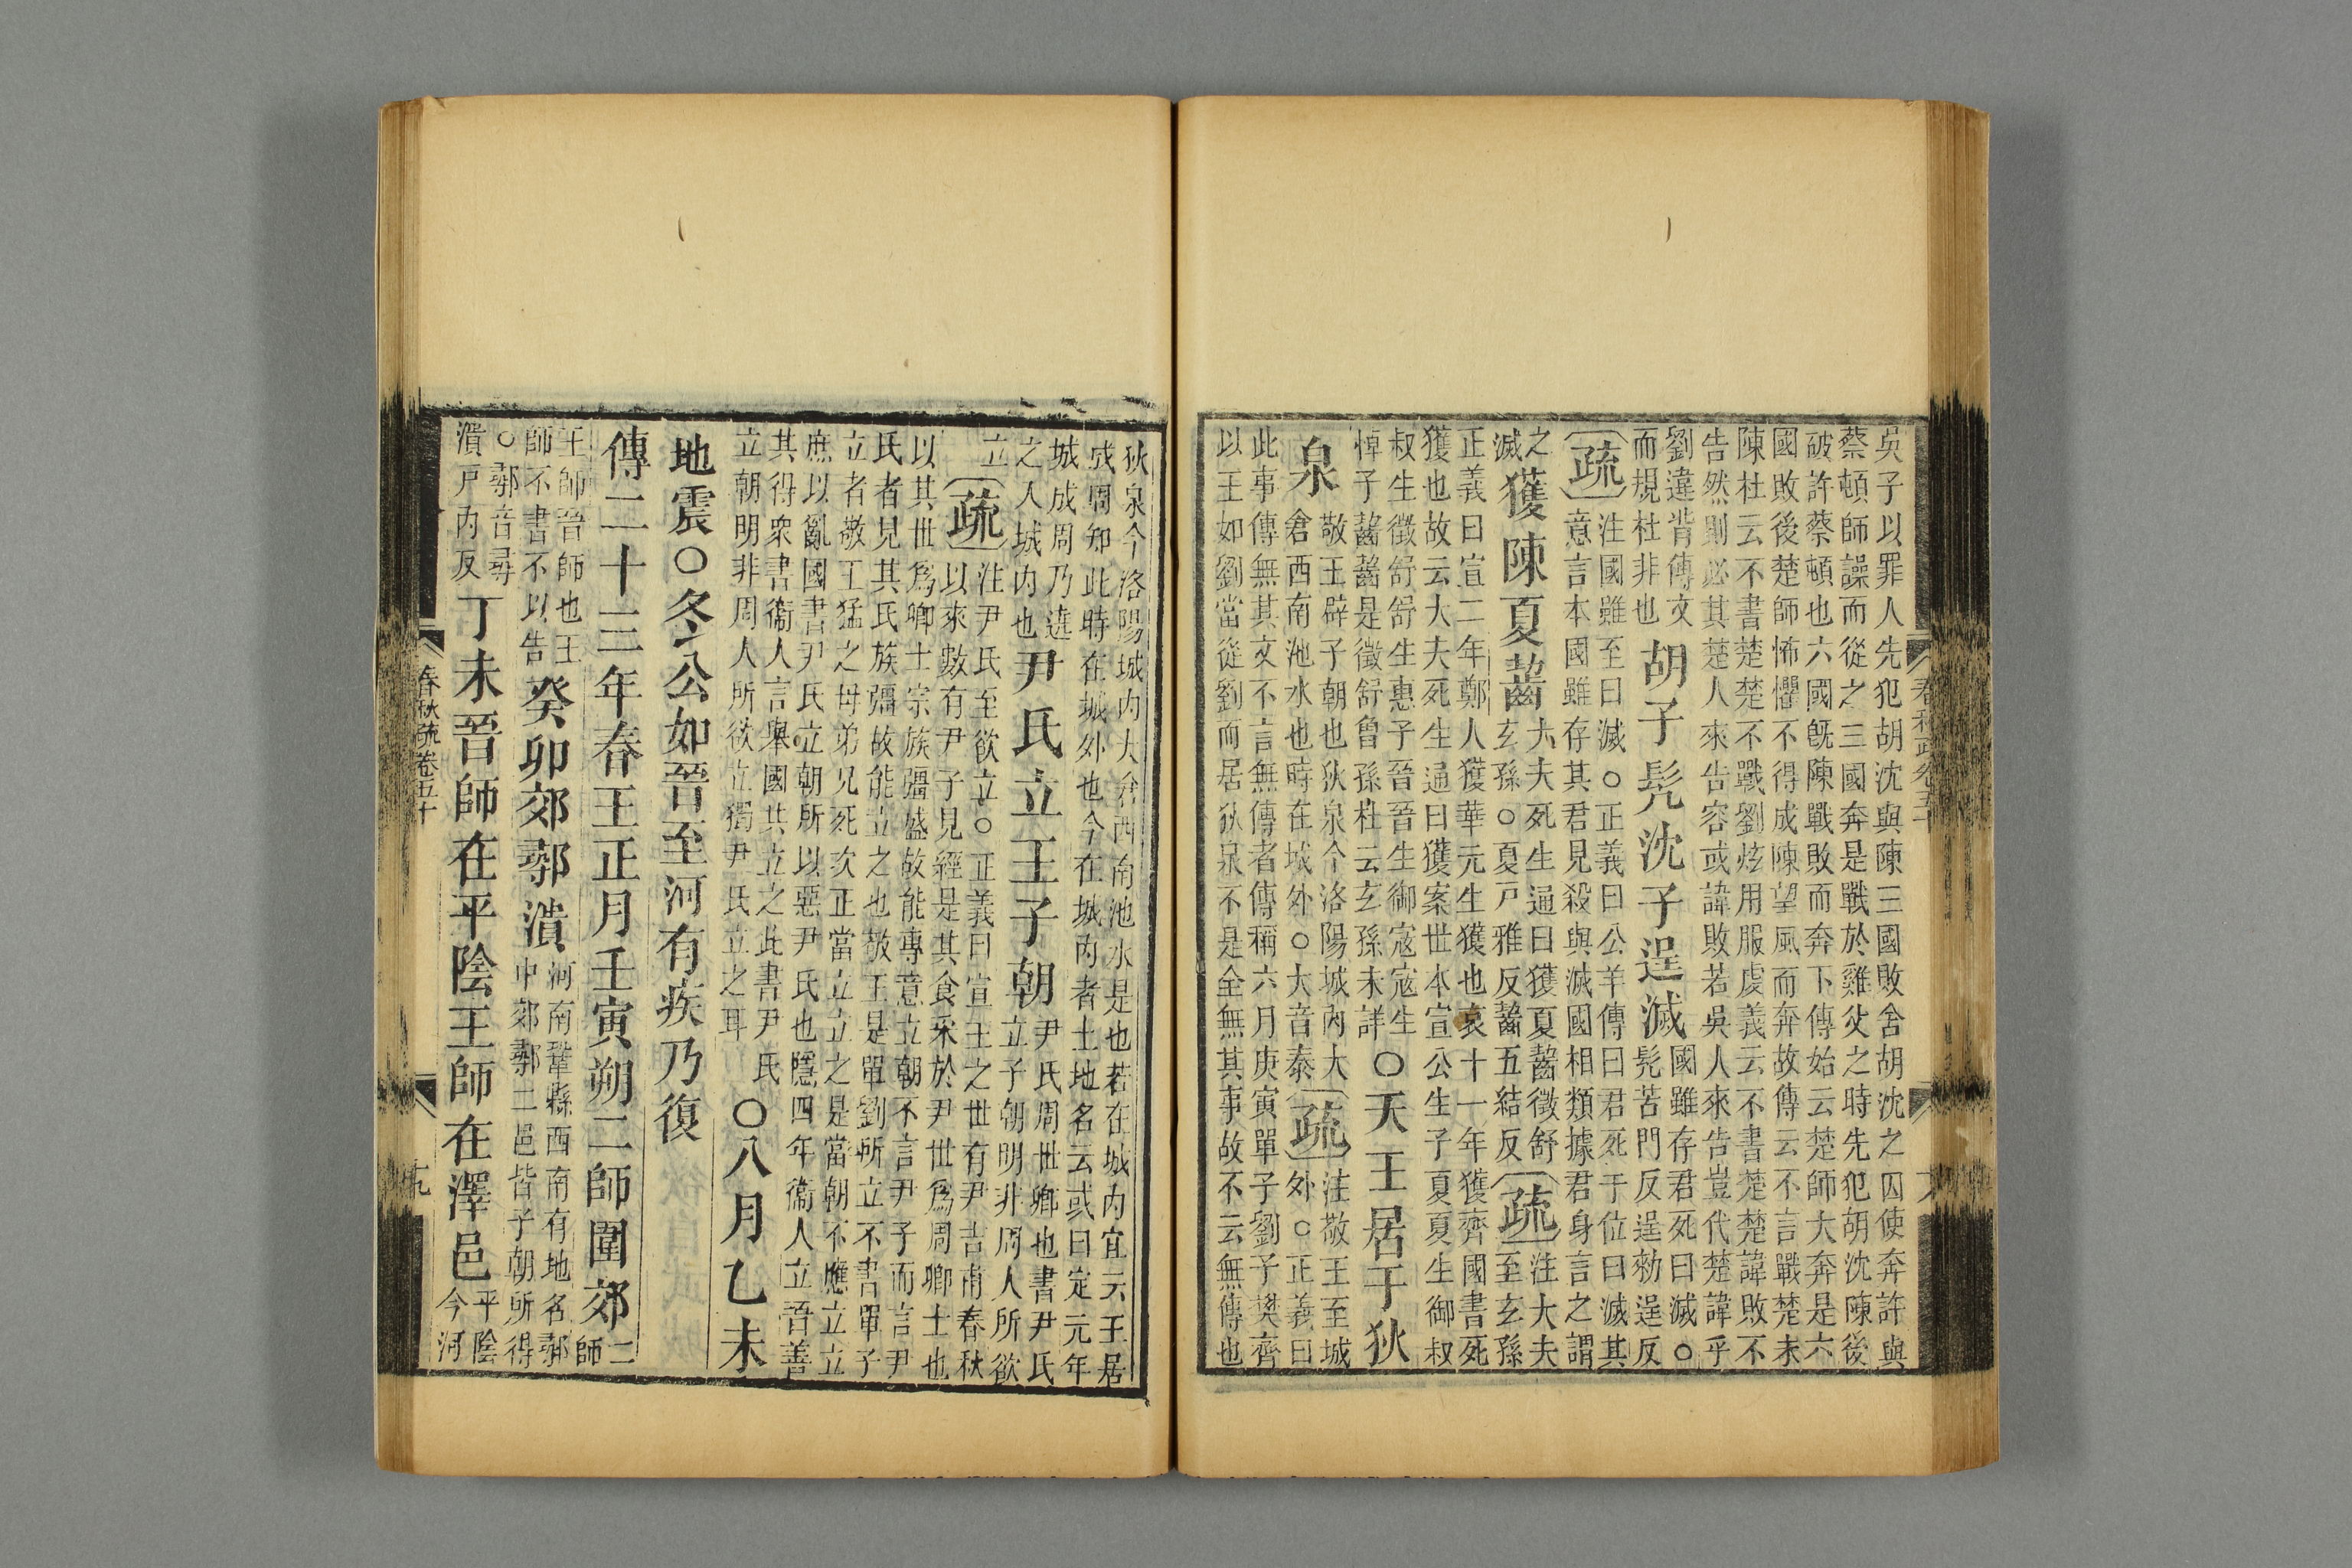 吳子以罪人先犯胡沈與陳三國敗舍胡沈之囚使奔許與
蔡頓師譟而從之三國奔是戰於雞父之時先犯胡沈陳後
破許蔡頓也六國旣陳戰敗而奔下傳始云楚師大奔是六
國敗後楚師怖懼不得成陳望風而奔故傳云不言戰楚未
陳杜云不書楚楚不戰劉炫用服虔義云不書楚楚諱敗不
告然則必其楚人來告容或諱敗若吳人來告豈代楚諱乎
劉違背傳文
而規杜非也
胡子髠沈子逞滅
國雖存君死曰滅○
髠苦門反逞勑逞反
疏
注國雖至曰滅○正義曰公羊傳曰君死于位曰滅其
意言本國雖存其君見殺與滅國相類據君身言之謂
之
滅
獲陳夏齧
大夫死生通曰獲夏齧徵舒
玄孫○夏戸雅反齧五結反
疏
注大夫
至玄孫
正義曰宣二年鄭人獲華元生獲也哀十一年獲齊國書死
獲也故云大夫死生通曰獲案世本宣公生子夏夏生御叔
叔生徵舒舒生惠子晉晉生御寇寇生
悼子齧齧是徵舒曾孫杜云玄孫未詳
○天王居于狄
泉
敬王辟子朝也狄泉今洛陽城內大
倉西南池水也時在城外○大音泰
疏
注敬王至城
外○正義曰
此事傳無其文不言無傳者傳稱六月庚寅單子劉子樊齊
以王如劉當從劉而居狄泉不是全無其事故不云無傳也
狄泉今洛陽城內大倉西南池水是也若在城內宜云王居
成周知此時在城外也今在城內者土地名云或曰定元年
城成周乃遶
之入城內也
尹氏立王子朝
尹氏周世卿也書尹氏
立子朝明非周人所欲
立
疏
注尹氏至欲立○正義曰宣王之世有尹吉甫春秋
以來數有尹子見經是其食采於尹世爲周卿士也
以其世爲卿士宗族彊盛故能專意立朝不言尹子而言尹
氏者見其氏族彊故能立之也敬王是單劉所立不書單子
立者敬王猛之母弟兄死次正當立立之是當朝不應立立
庶以亂國書尹氏立朝所以惡尹氏也隱四年衞人立晉善
其得衆書衞人言舉國共立之此書尹氏
立朝明非周人所欲立獨尹氏立之耳
○八月乙未
地震○冬公如晉至河有疾乃復
傳二十三年春王正月壬寅朔二師圍郊
二
師
王師晉師也王
師不書不以告
癸卯郊鄩潰
河南鞏縣西南有地名鄩
中郊鄩二邑皆子朝所得
○鄩音尋
潰戸內反
丁未晉師在平陰王師在澤邑
平陰
今河
春秋疏卷五十
十九